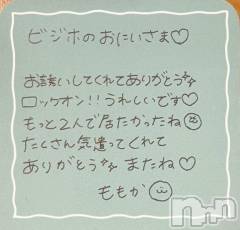 ビジホのおにいさま♡
お誘いしてくれてありがとう✨
ロックオン!!うれしいです♡
もっと2人で居たかったね☹
たくさん気遣ってくれて
ありがとう✨またね♡
ももか☺